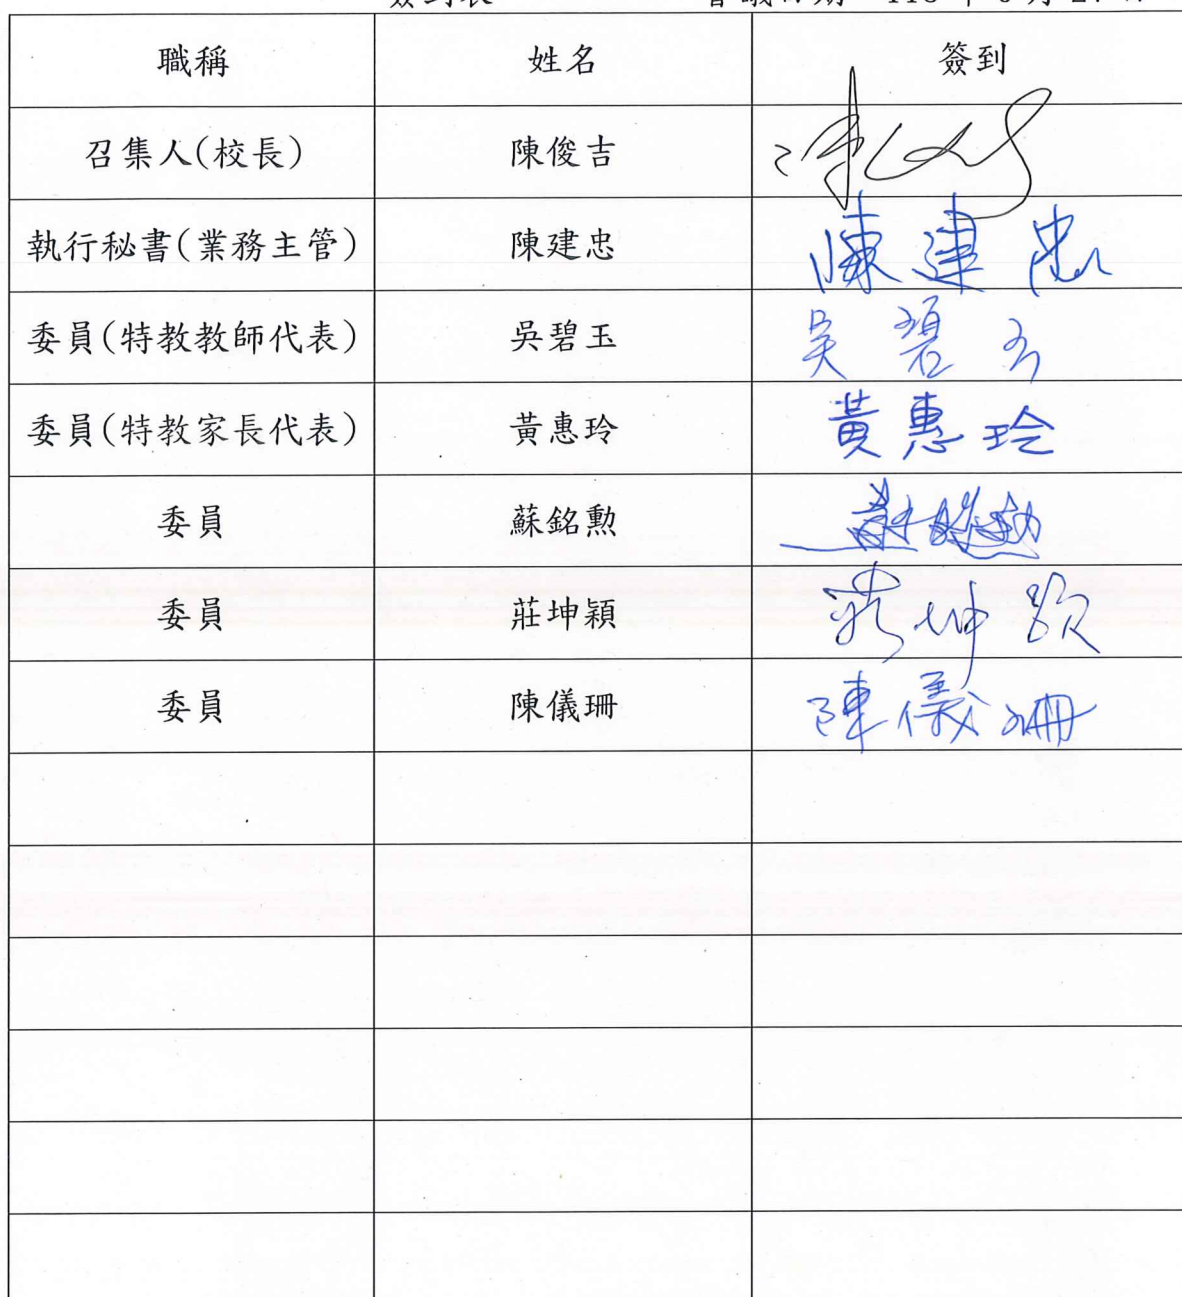 職稱 姓名 簽到
召集人(校長) 陳俊吉
執行秘書(業務主管) 陳建忠 陳建忠
委員(特教教師代表) 吳碧玉 吳碧玉
委員(特教家長代表) 黃惠玲 黃惠玲
委員 蘇銘勳
委員 莊坤穎 莊坤穎
委員 陳儀珊 陳儀珊